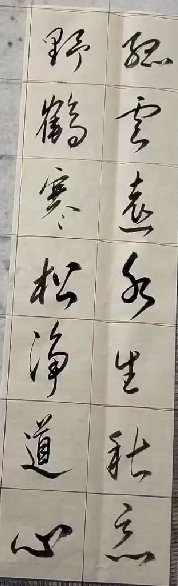 孤雲遠水生秋意
野鶴寒松淨道心